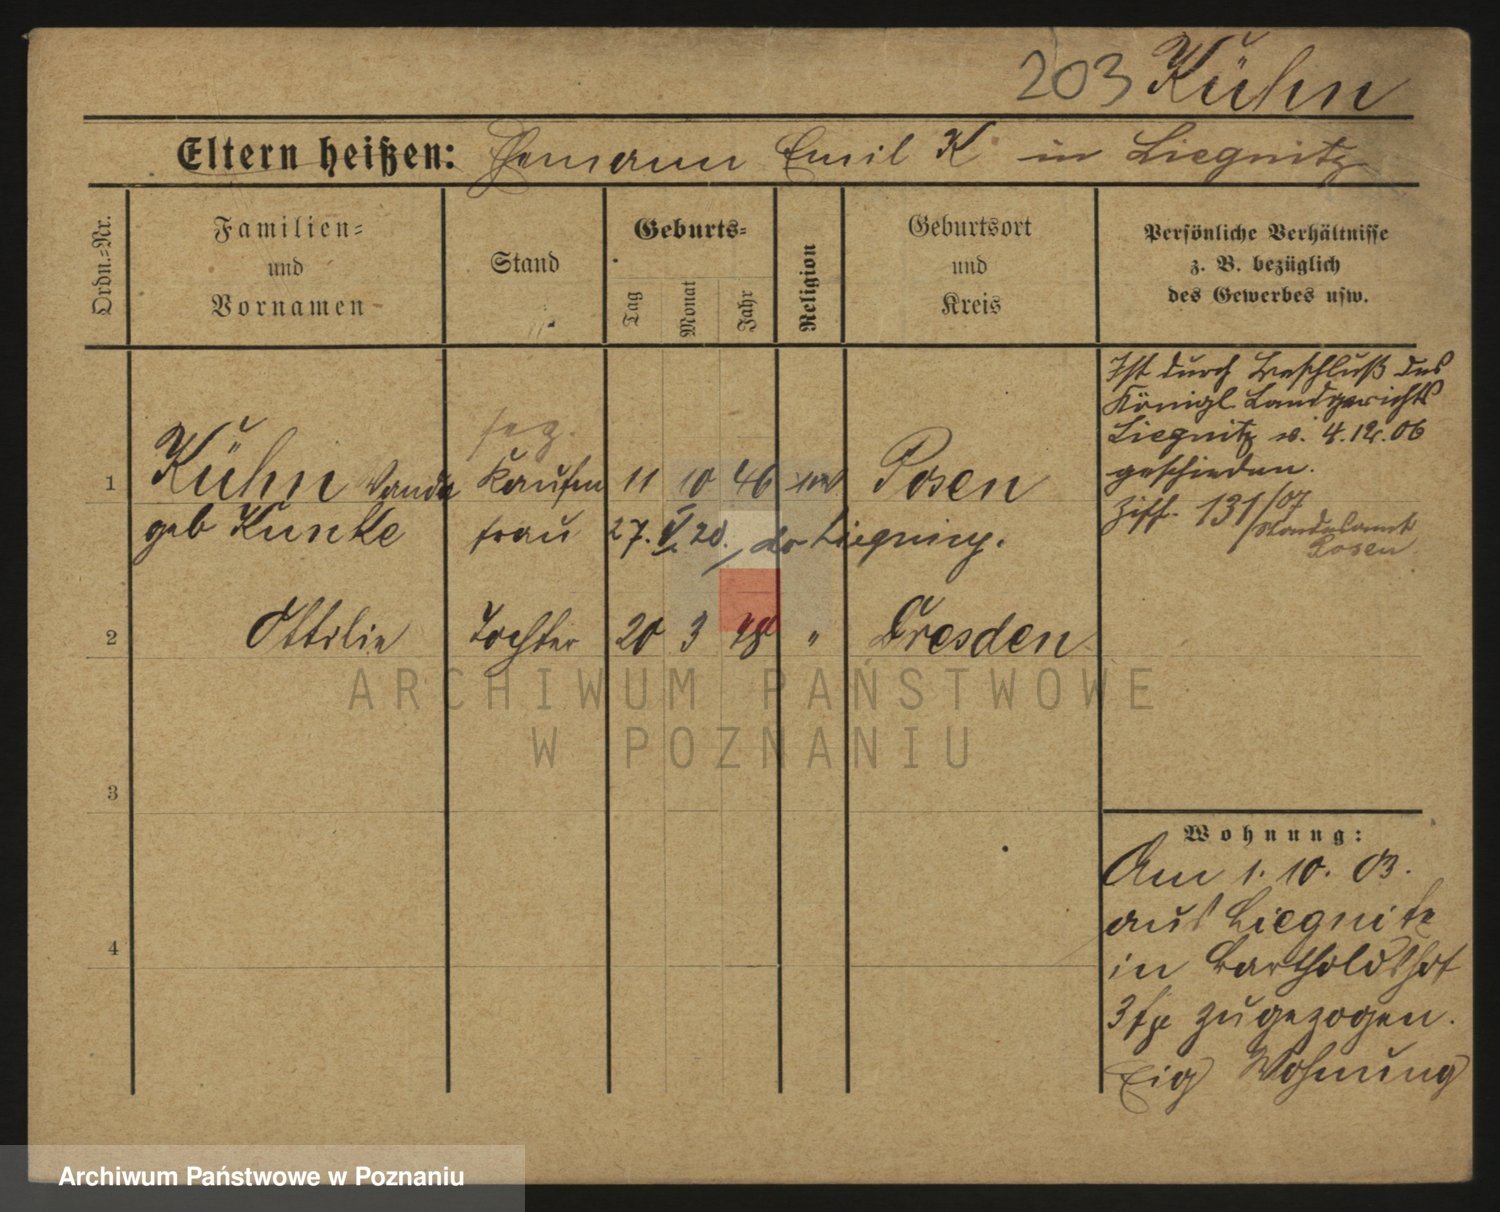 203 Kühn
Eltern heißen: Hermann Emil K in Liegnitz
Ordn.-Nr.
Familien-
und
Vornamen
Stand
Geburts-
Tag
Monat
Jahr
Religion
Geburtsort
und
Kreis
Persönliche Verhältnisse
z. B. bezüglich
des Gewerbes usw.
Ist durch Beschluß des
Königl Landgerichts
Liegnitz v. 4.12.06
geschieden.
Ziff. 131/07
Standesamt
Posen
1 Kühn Wanda Kaufm 11 10 46 Posen
geb Kunke frau 27. V 20.
2 Ottilie Tochter 20 3 78 " Dresden
3
4
Wohnung:
Am 1. 10. 03.
aus Liegnitz
in Bartholdshof
zugezogen.
Eig Wohnung
ARCHIWUM PAŃSTWOWE
W POZNANIU
Archiwum Państwowe w Poznaniu